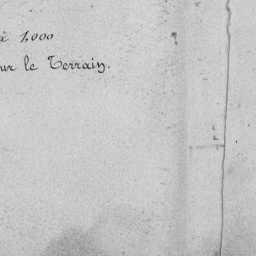 à 1,000
ur le Terrain.